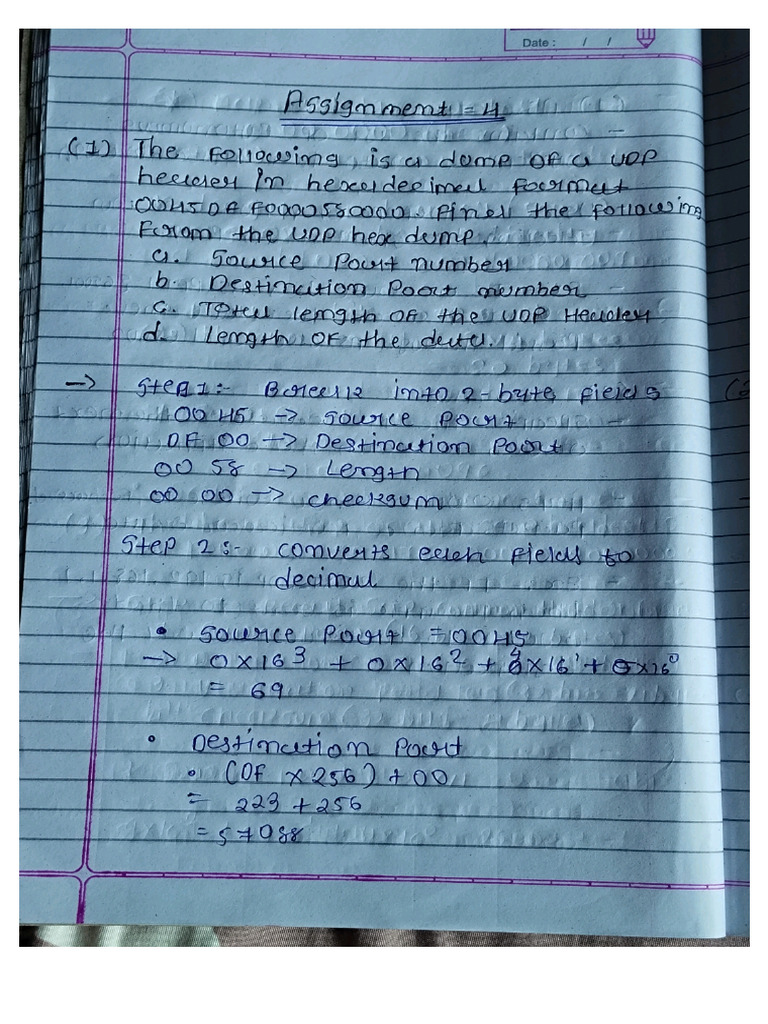 Date : / /
Assignment = 4
(1) The following is a dump of a UDP
header in hexadecimal format
0045DF0000580000. Find the following
from the UDP hex dump.
a. Source Port number
b. Destination Port number
c. Total length of the UDP Header
d. Length of the data.
→ Step 1:- Break into 2-byte fields
00 45 → Source Port
DF 00 → Destination Port
00 58 → Length
00 00 → checksum
Step 2:- converts each fields to
decimal
• Source Port = 0045
→ 0×16³ + 0×16² + 4×16¹ + 5×16⁰
= 69
• Destination Port
• (DF × 256) + 00
= 223 + 256
= 57088